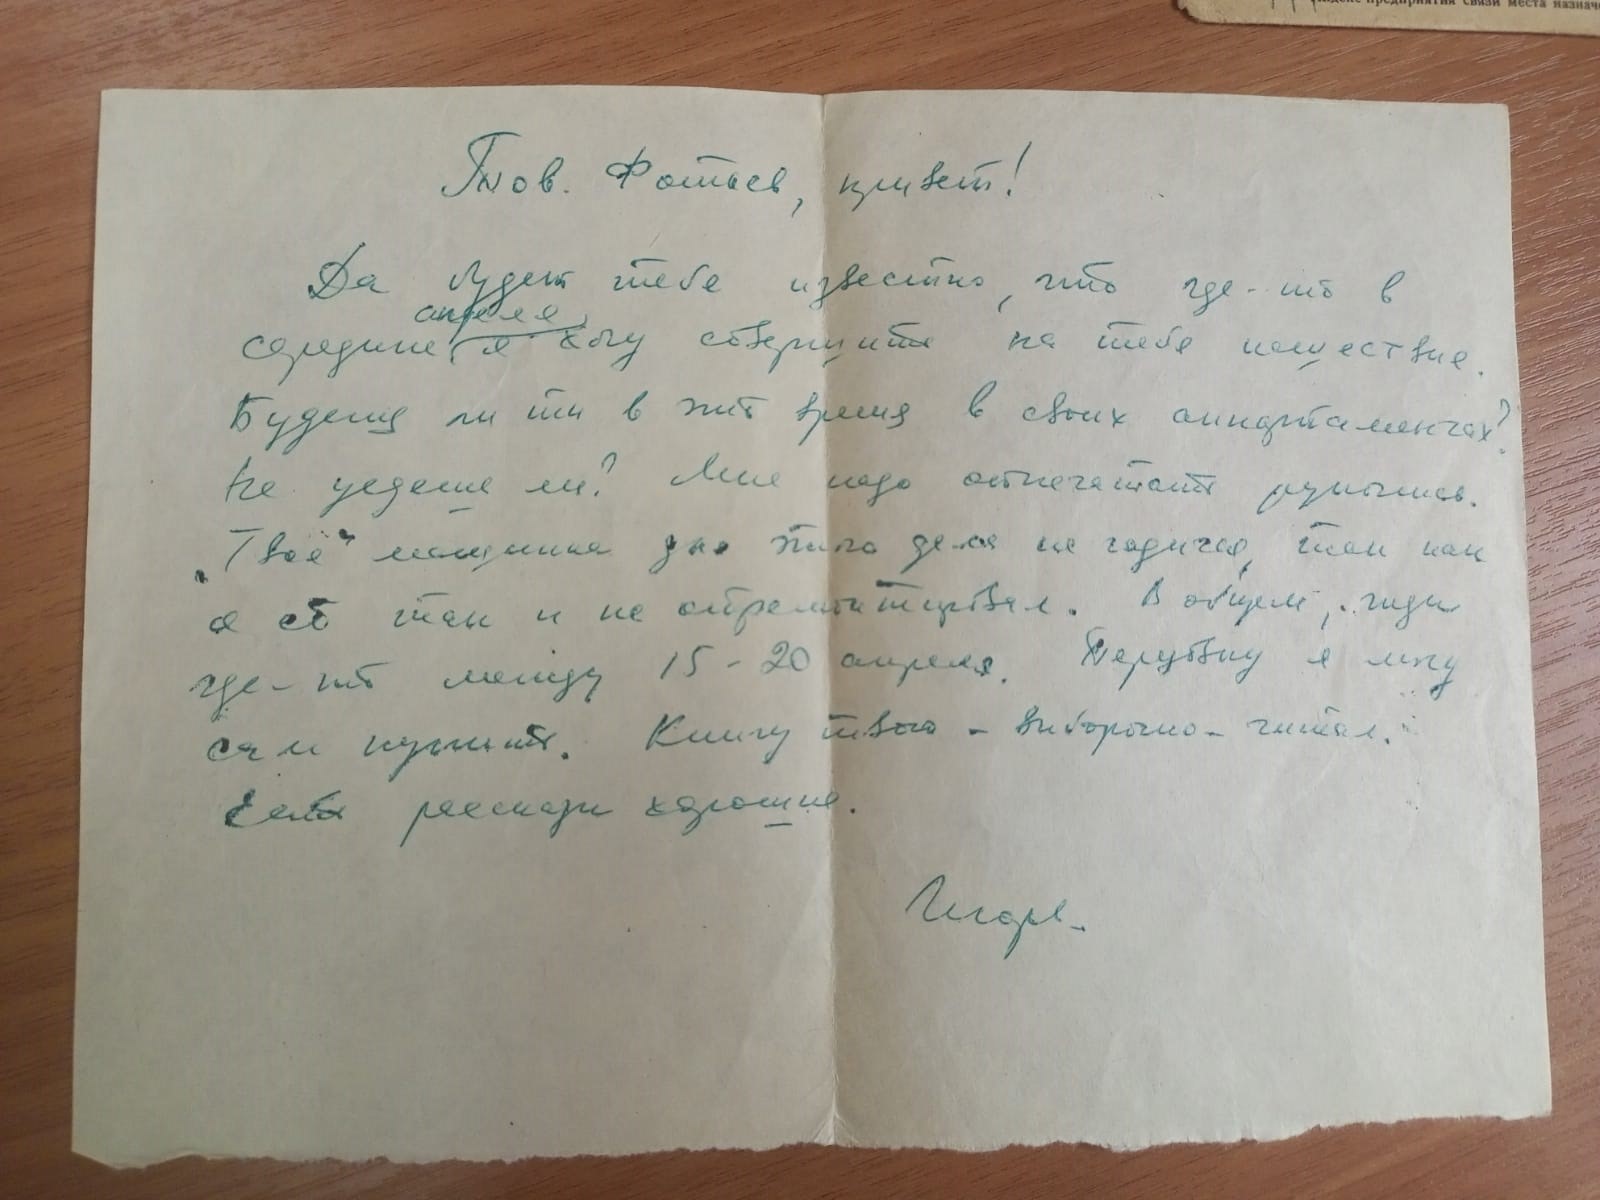 индекс предприятия связи места назначе
Тов. Фотьев, привет!
Да будет тебе известно, что где-то в
апреля
середине я хочу совершить на тебя нашествие.
Будешь ли ты в это время в своих аппартаментах?
Не уедешь ли? Мне надо отпечатать рукопись.
"Твоя" машинка для этого дела не годится, так как
я её так и не отремонтировал. В общем, жди
где-то между 15-20 апреля. я могу
сам купить. Книгу твою - выборочно - читал.
Есть рассказы хорошие.
Игорь.